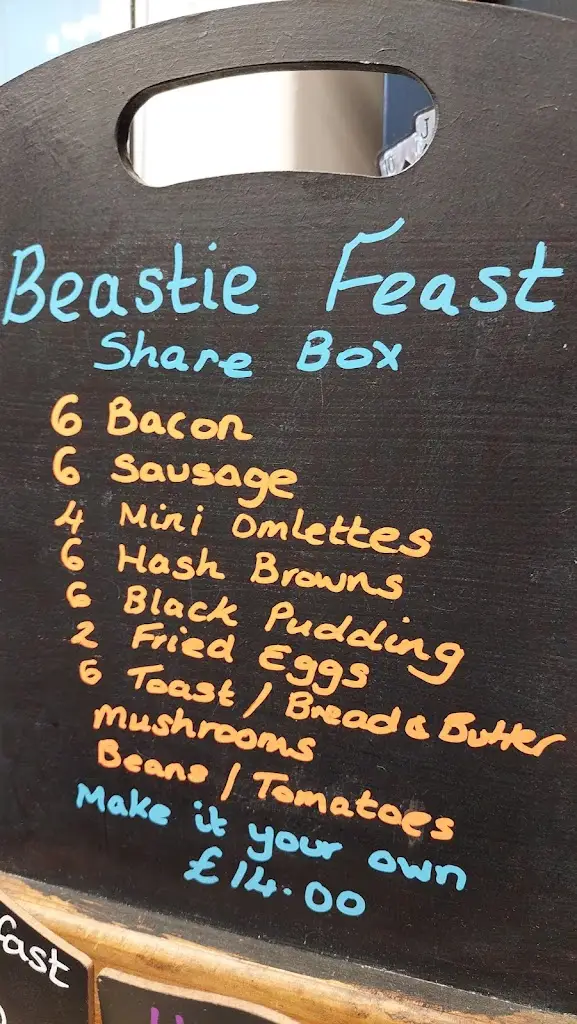 J
Beastie Feast
Share Box
6 Bacon
6 Sausage
4 Mini Omlettes
6 Hash Browns
6 Black Pudding
2 Fried Eggs
6 Toast / Bread & Butter
Mushrooms
Beans / Tomatoes
Make it your own
£14.00
fast